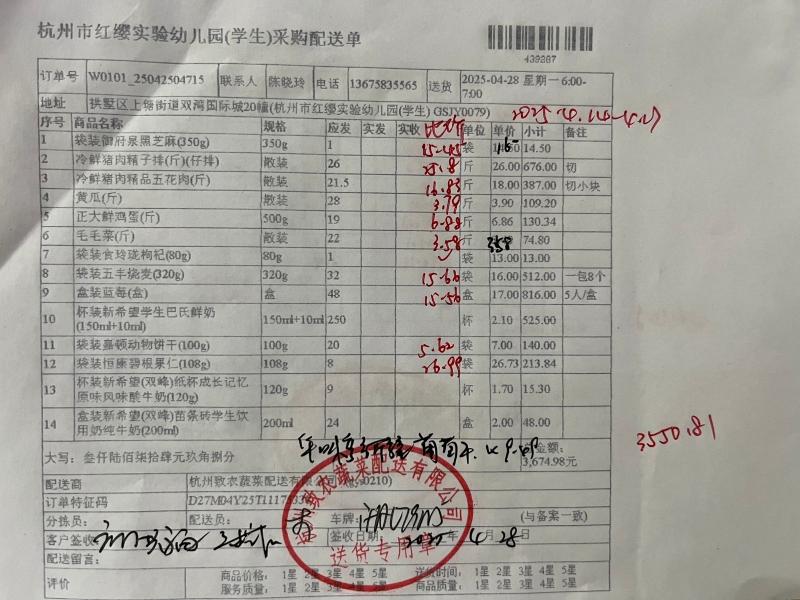 杭州市红缨实验幼儿园(学生)采购配送单
439387
订单号 W0101_25042504715 联系人 陈晓玲 电话 13675835565 送货 2025-04-28 星期一 6:00-7:00
地址 拱墅区上塘街道双湾国际城20幢(杭州市红缨实验幼儿园(学生) GSJY0079)
序号 商品名称 规格 应发 实发 实收 单位 单价 小计 备注
1 袋装御府泉黑芝麻(350g) 350g 1 15.45 袋 14.50
2 冷鲜猪肉精子排(斤)(仔排) 散装 26 25.8 斤 26.00 676.00 切
3 冷鲜猪肉精品五花肉(斤) 散装 21.5 16.83 斤 18.00 387.00 切小块
4 黄瓜(斤) 散装 28 3.79 斤 3.90 109.20
5 正大鲜鸡蛋(斤) 500g 19 6.88 斤 6.86 130.34
6 毛毛菜(斤) 散装 22 3.58 斤 3.58 74.80
7 袋装食玲珑枸杞(80g) 80g 1 袋 13.00 13.00
8 袋装五丰烧麦(320g) 320g 32 15.66 袋 16.00 512.00 一包8个
9 盒装蓝莓(盒) 盒 48 15.56 盒 17.00 816.00 5人/盒
10 杯装新希望学生巴氏鲜奶(150ml+10ml) 150ml+10ml 250 杯 2.10 525.00
11 袋装嘉顿动物饼干(100g) 100g 20 5.62 袋 7.00 140.00
12 袋装恒康碧根果仁(108g) 108g 8 26.99 袋 26.73 213.84
13 杯装新希望(双峰)纸杯成长记忆原味风味酸牛奶(120g) 120g 9 杯 1.70 15.30
14 盒装新希望(双峰)苗条砖学生饮用奶纯牛奶(200ml) 200ml 24 盒 2.00 48.00
3550.81
大写：叁仟陆佰柒拾肆元玖角捌分 总金额：3,674.98元
配送商 杭州致农蔬菜配送有限公司
订单特征码 D27M04Y25T1117
分拣员： 配送员： 车牌： (与备案一致)
客户签收 签收日期： 4月28日
配送留言：
评价 商品价格： 1星 2星 3星 4星 5星 送货时间： 1星 2星 3星 4星 5星
服务质量： 1星 2星 3星 4星 5星 商品质量： 1星 2星 3星 4星 5星
致农蔬菜配送有限公司
送货专用章